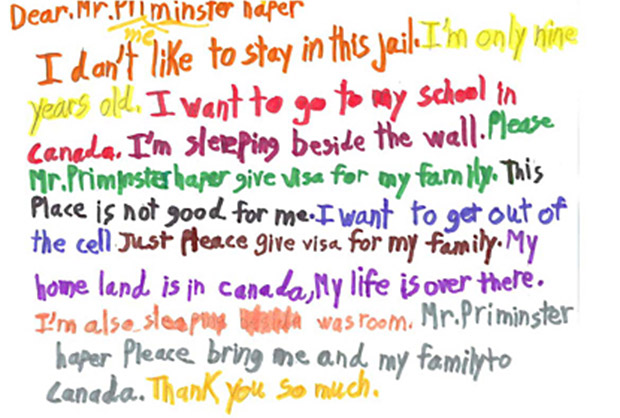 Dear.Mr.Priminster haper
me
I don't like to stay in this jail. I'm only nine
years old. I want to go to my school in
canada. I'm sleeping beside the wall. Please
Mr.Priminster haper give visa for my family. This
Place is not good for me. I want to get out of
the cell Just Pleace give visa for my family. My
home land is in canada, My life is over there.
I'm also sleaping wasroom. Mr.Priminster
haper Pleace bring me and my family to
canada. Thank you so much.